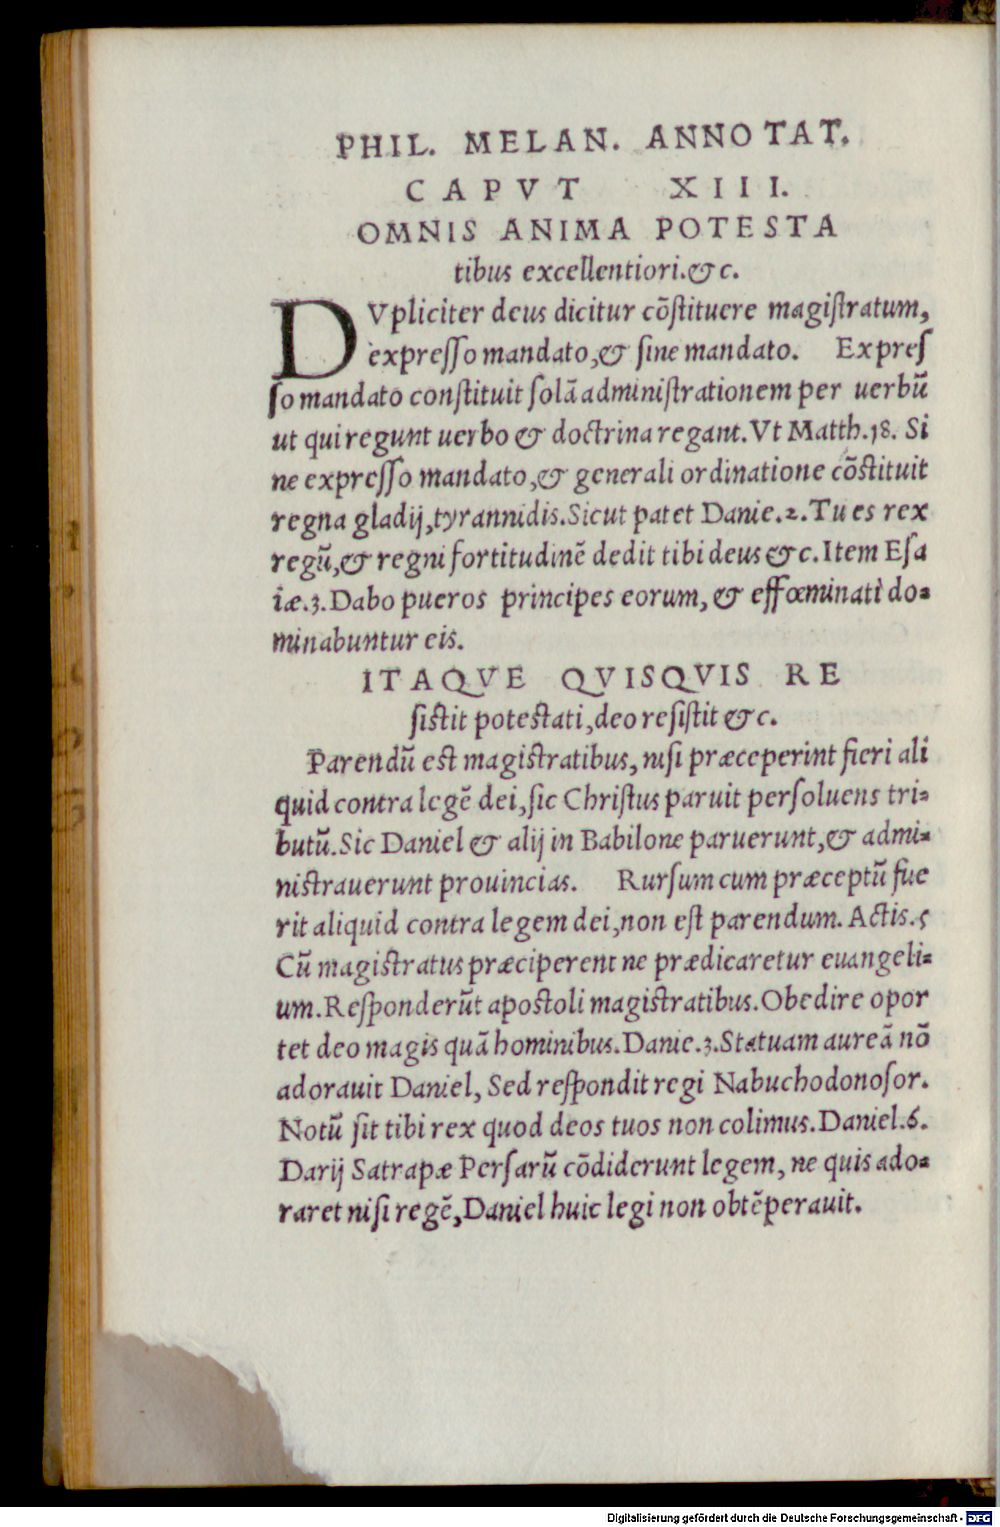 PHIL. MELAN. ANNOTAT.
CAPVT XIII.
OMNIS ANIMA POTESTA
tibus excellentiori.&c.
DVpliciter deus dicitur cõſtituere magiſtratum,
expreſſo mandato,& ſine mandato. Expreſ
ſo mandato conſtituit ſolã adminiſtrationem per uerbũ
ut qui regunt uerbo & doctrina regant. Vt Matth.18. Si
ne expreſſo mandato,& generali ordinatione cõſtituit
regna gladij, tyrannidis. Sicut patet Danie.2. Tu es rex
regũ,& regni fortitudinẽ dedit tibi deus &c. Item Eſa
iæ.3. Dabo pueros principes eorum, & effœminati do⸗
minabuntur eis.
ITAQVE QVISQVIS RE
ſiſtit poteſtati, deo reſiſtit &c.
Parendũ eſt magiſtratibus, niſi præceperint fieri ali
quid contra legẽ dei, ſic Chriſtus paruit perſoluens tri⸗
butũ. Sic Daniel & alij in Babilone paruerunt,& admi⸗
niſtrauerunt prouincias. Rurſum cum præceptũ fue
rit aliquid contra legem dei, non eſt parendum. Actis.5
Cũ magiſtratus præciperent ne prædicaretur euangeli⸗
um. Reſponderũt apoſtoli magiſtratibus. Obedire opor
tet deo magis quã hominibus. Danie.3. Statuam aureã nõ
adorauit Daniel, Sed reſpondit regi Nabuchodonoſor.
Notũ ſit tibi rex quod deos tuos non colimus. Daniel.6.
Darij Satrapæ Perſarũ cõdiderunt legem, ne quis ado⸗
raret niſi regẽ, Daniel huic legi non obtẽperauit.
Digitalisierung gefördert durch die Deutsche Forschungsgemeinschaft - DFG